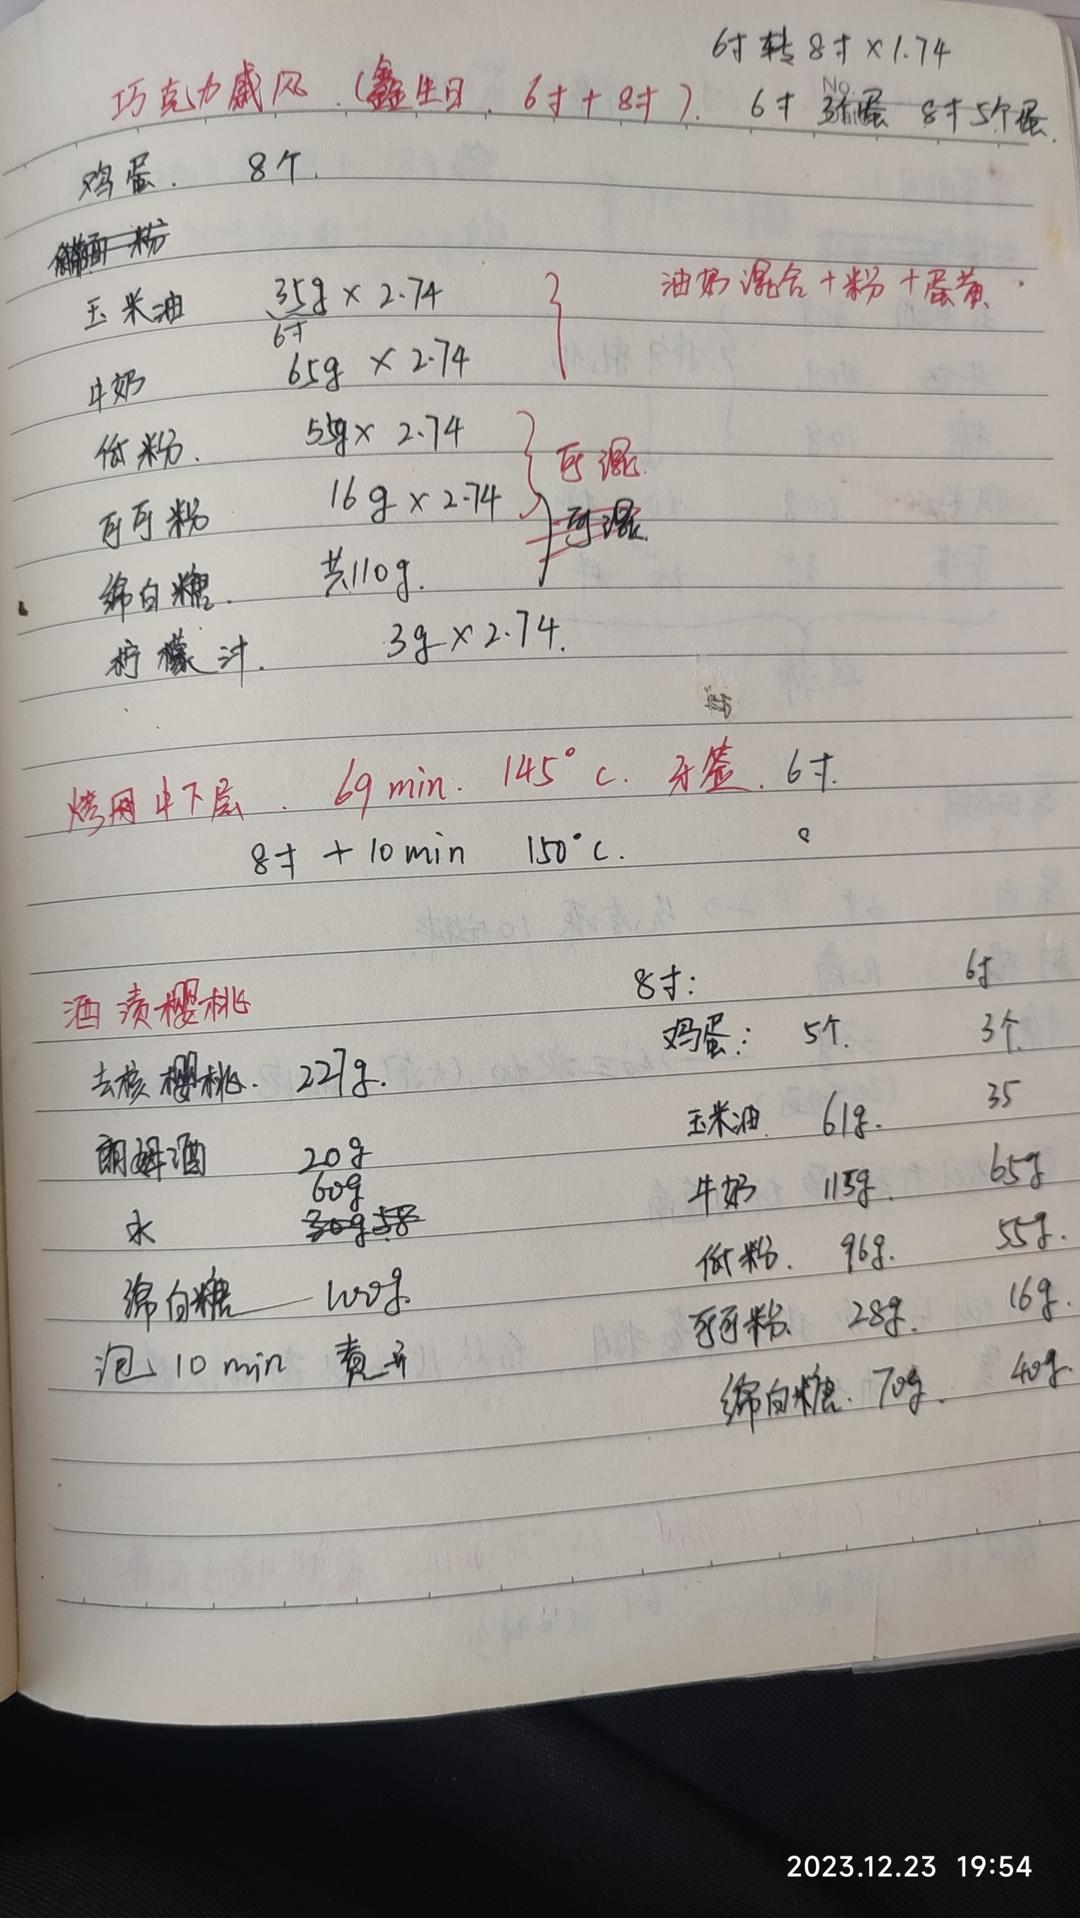 6寸转8寸×1.74
巧克力戚风.(鑫生日.6寸+8寸).
No.
6寸 3个蛋 8寸5个蛋.
鸡蛋. 8个.
玉米油 35g × 2.74
6寸
油奶混合+粉+蛋黄.
牛奶 65g × 2.74
低粉. 55g× 2.74
可混.
可可粉 16g × 2.74
可混.
绵白糖. 共110g.
柠檬汁. 3g × 2.74.
烤网中下层. 69min. 145°c. 牙签. 6寸.
8寸 +10min 150°c.
酒渍樱桃
去核樱桃. 227g.
朗姆酒 20g
60g
水
绵白糖 100g.
泡 10min 煮开
8寸: 6寸
鸡蛋: 5个. 3个.
玉米油. 61g. 35
牛奶 115g. 65g
低粉. 96g. 55g.
可可粉. 28g. 16g.
绵白糖. 70g. 40g.
2023.12.23 19:54